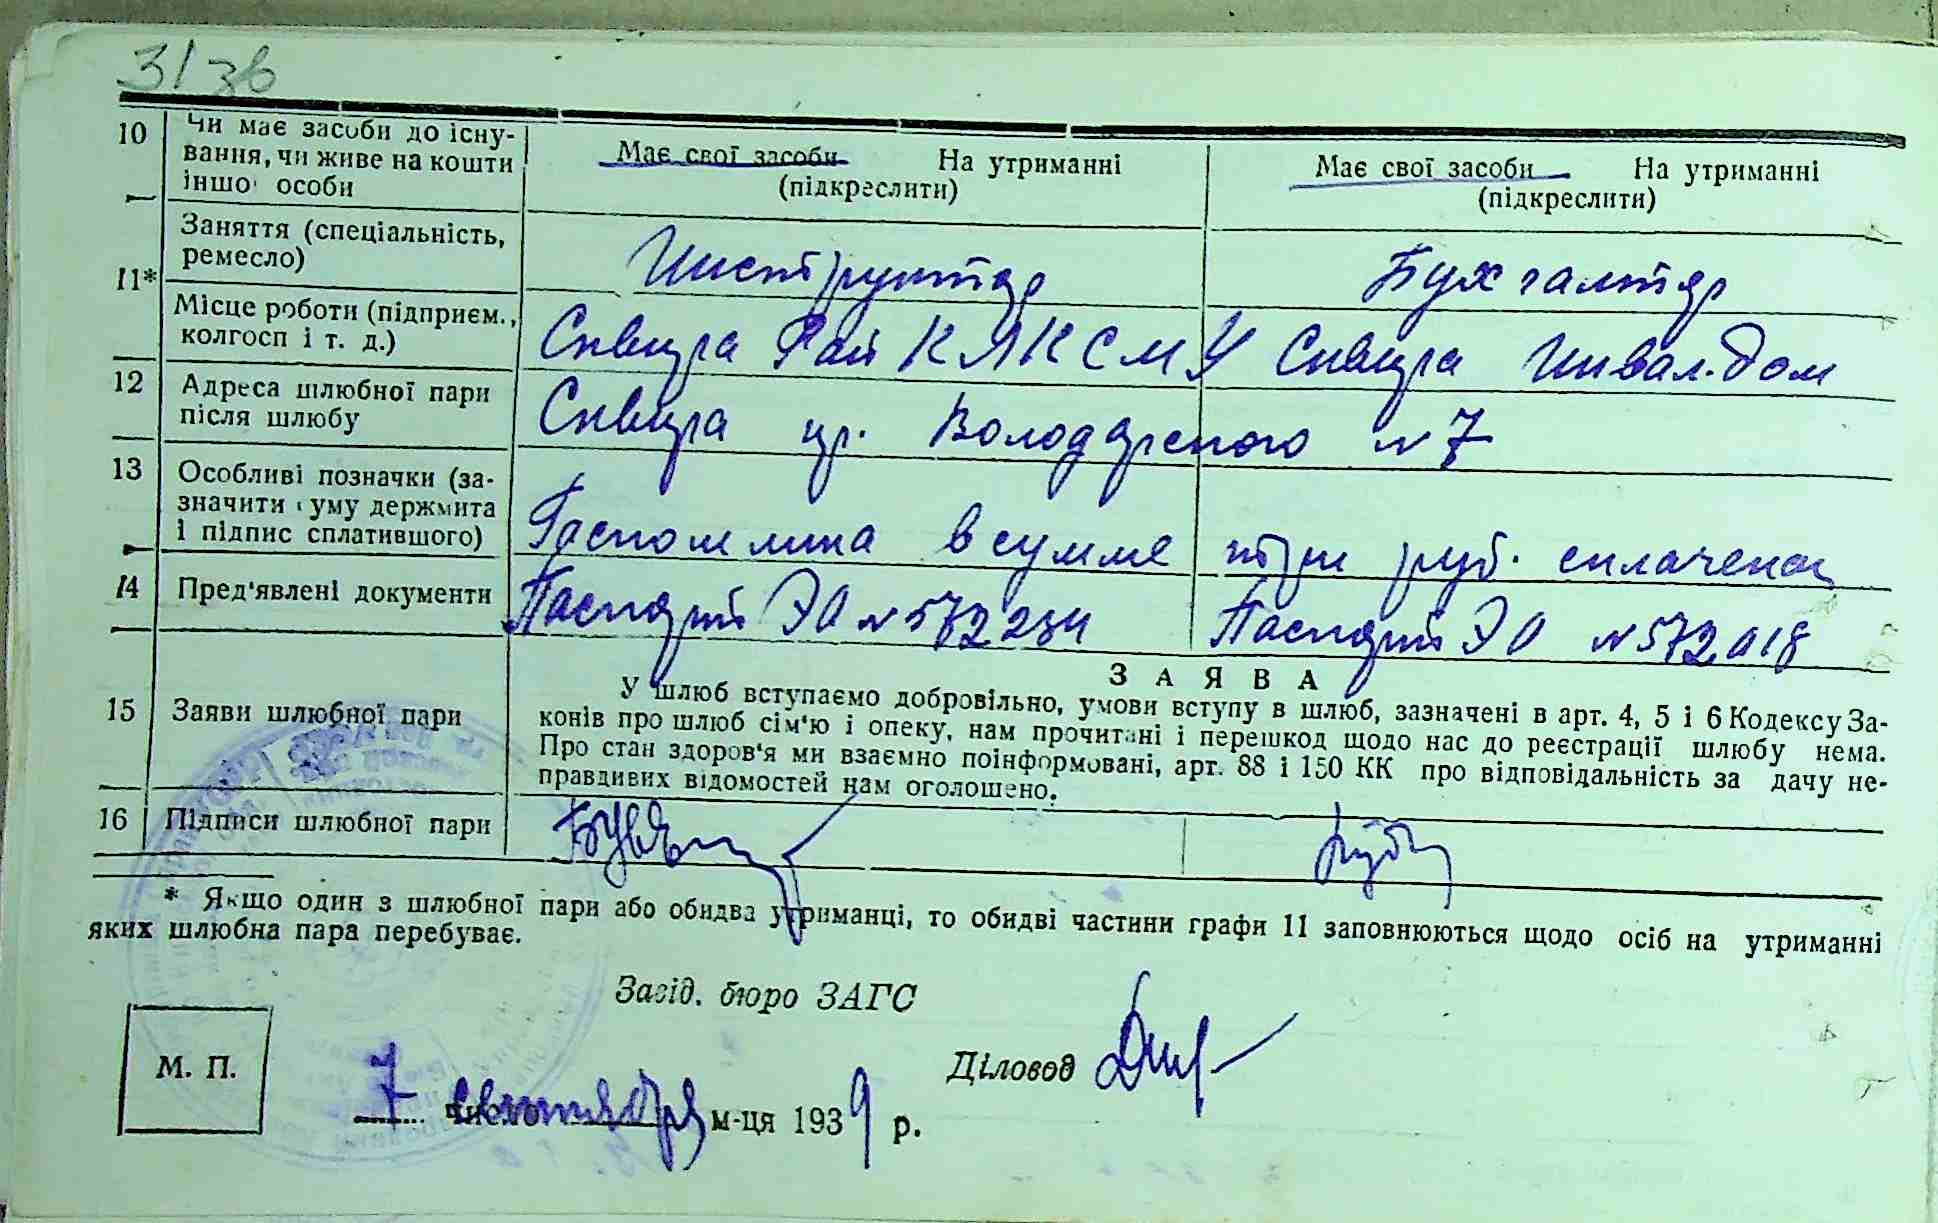 31 зв
10 Чи має засоби до існу-
вання, чи живе на кошти
іншої особи
Має свої засоби На утриманні
(підкреслити)
Має свої засоби На утриманні
(підкреслити)
11* Заняття (спеціальність,
ремесло)
Инструктор
Бухгалтер
Місце роботи (підприєм.,
колгосп і т. д.)
Сквира Рай К ЛКСМУ
Сквира Инвал. дом
12 Адреса шлюбної пари
після шлюбу
Сквира ул. Володарского № 7
13 Особливі позначки (за-
значити суму держмита
і підпис сплатившого)
Госпошлина в сумме три руб. сплачена
14 Пред'явлені документи
Паспорт ЭО № 572234
Паспорт ЭО № 572018
15 Заяви шлюбної пари
ЗАЯВА
У шлюб вступаємо добровільно, умови вступу в шлюб, зазначені в арт. 4, 5 і 6 Кодексу За-
конів про шлюб сім'ю і опеку, нам прочитані і перешкод щодо нас до реєстрації шлюбу нема.
Про стан здоров'я ми взаємно поінформовані, арт. 88 і 150 КК про відповідальність за дачу не-
правдивих відомостей нам оголошено.
16 Підписи шлюбної пари
* Якщо один з шлюбної пари або обидва утриманці, то обидві частини графи 11 заповнюються щодо осіб на утриманні
яких шлюбна пара перебуває.
Завід. бюро ЗАГС
Діловод
М. П.
7 число сентября м-ця 1939 р.